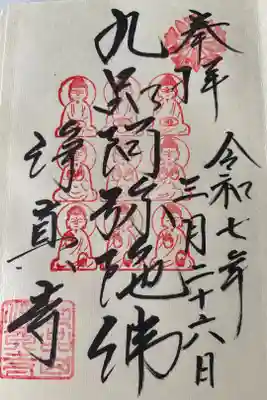 奉拝
令和七年
三月二十六日
九品阿弥陀佛
淨眞寺